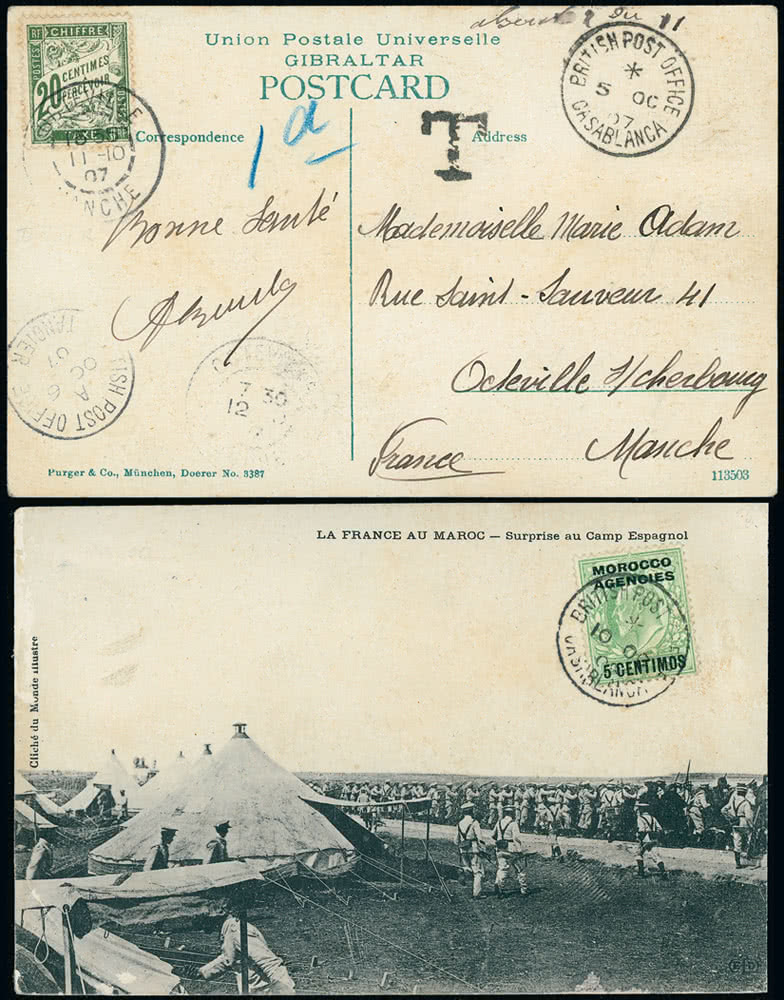 Union Postale Universelle
GIBRALTAR
POSTCARD
Correspondence
Address
POSTES
RF
CHIFFRE
20
CENTIMES
A PERCEVOIR
TAXE
11 -10
07
MANCHE
1 a
T
BRITISH POST OFFICE
5 OC
07
CASABLANCA
Bonne Santé
Mademoiselle Marie Adam
Rue Saint-Sauveur 41
Octeville s/cherbourg
Manche
France
BRITISH POST OFFICE
A
OC 6
07
TANGIER
7 30
12
Purger & Co., München, Doerer No. 3387
113503
LA FRANCE AU MAROC — Surprise au Camp Espagnol
Cliché du Monde illustre
MOROCCO
AGENCIES
5 CENTIMOS
BRITISH POST
10 OC
CASABLANCA
ELD